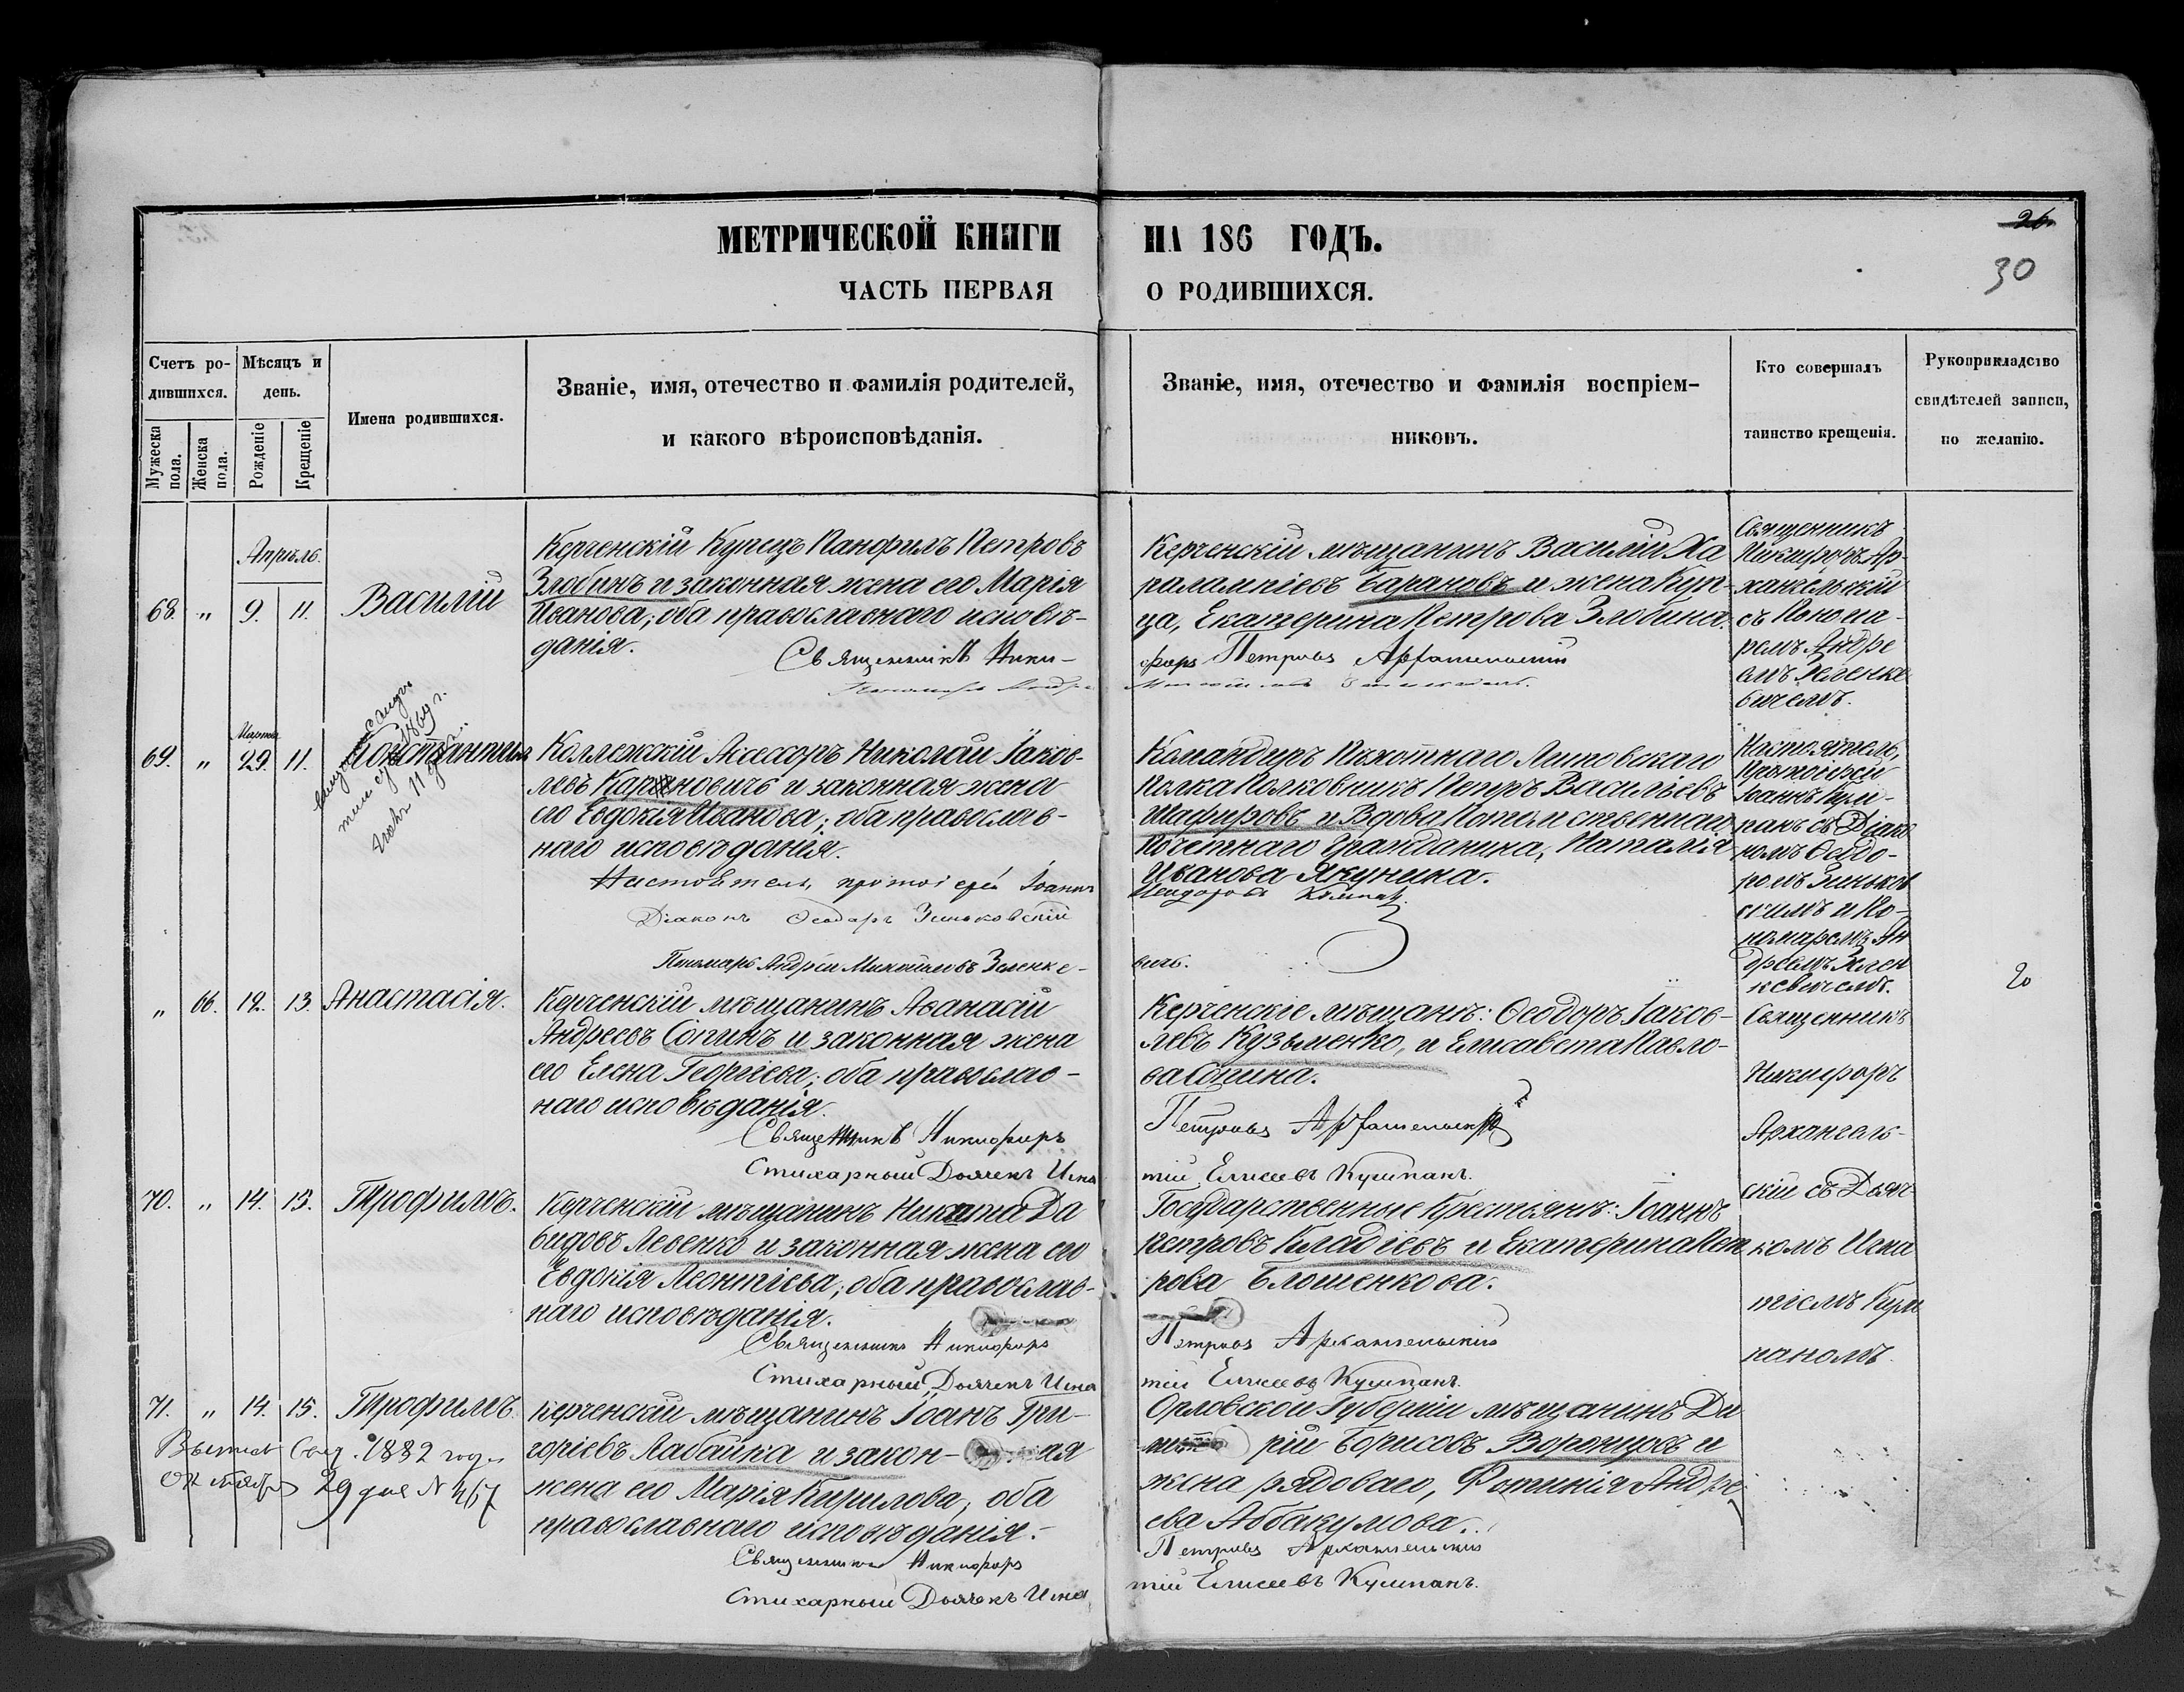 МЕТРИЧЕСКОЙ КНИГИ НА 186 ГОДЪ.
26
30
ЧАСТЬ ПЕРВАЯ О РОДИВШИХСЯ.
Счетъ ро-
дившихся.
Мужеска пола.
Женска пола.
Мѣсяцъ и
день.
Рожденіе
Крещеніе
Имена родившихся.
Званіе, имя, отечество и фамилія родителей,
и какого вѣроисповѣданія.
Званіе, имя, отечество и фамилія воспріем-
никовъ.
Кто совершалъ
таинство крещенія.
Рукоприкладство
свидѣтелей записи,
по желанію.
Апрѣль.
68. " 9. 11. Василій
Керченскій Купецъ Панфилъ Петровъ
Злобинъ и законная жена его Марія
Иванова; оба православнаго исповѣ-
данія.
Священникъ Ники-
Керченскій мѣщанинъ Василій Ха
ралампіевъ Барановъ и жена Куп-
ца, Екатерина Петрова Злобина.
форъ Петровъ Архангельскій
Священникъ
Никифоръ Ар-
хангельскій
съ Понома-
ремъ Андре
емъ Зеленке
вичемъ.
Марта
69. " 29. 11. Константинъ
Коллежскій Асессоръ Николай Іаков-
левъ Кар новичъ и законная жена
его Евдокія Иванова; оба православ-
наго исповѣданія.
Настоятель, протоіерей Іоаннъ
Діаконъ Ѳеодоръ Зеньковскій
Пономарь Андрей Михайловъ Зеленке-
Командиръ Пѣхотнаго Литовскаго
Полка Полковникъ Петръ Васильевъ
Шафировъ и Вдова Потомственнаго
Почетнаго Гражданина, Наталія
Иванова Якунина.
вичъ.
Настоятель,
Протоіерей
Іоаннъ Кум-
панъ съ Діако
номъ Ѳеодо-
ромъ Зеньков
и По-
номаремъ Ан
дреемъ Зелен
кевичемъ.
20
" 66. 12. 13. Анастасія.
Керченскій мѣщанинъ Аѳанасій
Андреевъ Сопинъ и законная жена
его Елена Георгіева; оба православ-
наго исповѣданія.
Священникъ Никифоръ
Стихарный Дьячекъ Игна
Керченскіе мѣщане: Ѳеодоръ Іаков-
левъ Кузьменко, и Елисавета Павло-
ва Сопина.
Петровъ Архангельскій
тій Елисеевъ Кумпанъ.
Священникъ
Никифоръ
Архангель-
скій съ Дьяч
комъ Игна
тіемъ Кум
паномъ.
70. " 14. 13. Трофимъ.
Керченскій мѣщанинъ Никита Да
видовъ Левенко и законная жена его
Евдокія Леонтіева; оба православ-
наго исповѣданія.
Священникъ Никифоръ
Стихарный Дьячекъ Игна
Государственные Крестьяне: Іоаннъ
Петровъ Кладіевъ и Екатерина Пет
рова Блошенкова.
Петровъ Архангельскій
тій Елисеевъ Кумпанъ.
71. " 14. 15. Трофимъ.
1882 года
29 дня N 467
Керченскій мѣщанинъ Іоанъ Гри-
горіевъ Лабайка и закон- ая
жена его Марія Кирилова; оба
православнаго исповѣданія.
Священникъ Никифоръ
Стихарный Дьячекъ Игна
Орловской Губерніи мѣщанинъ Ди
мит рій Борисовъ Воронцовъ и
жена рядоваго, Фотинія Андре
ева Аббакумова.
Петровъ Архангельскій
тій Елисеевъ Кумпанъ.